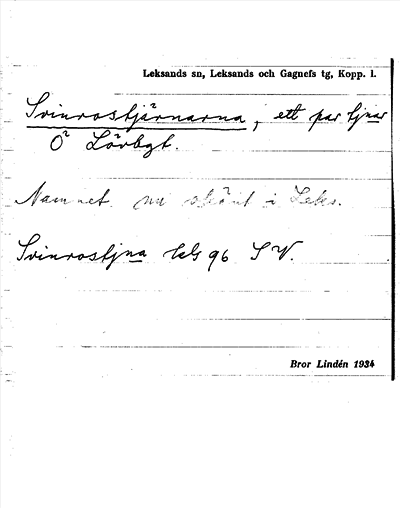 Leksands sn, Leksands och Gagnefs tg, Kopp. l.
Svinrostjärnarna, ett par tjnar
Ö Lövbgt.
Namnet nu okänt i Leks.
Svinrostjna lds 96 SV.
Bror Lindén 1934